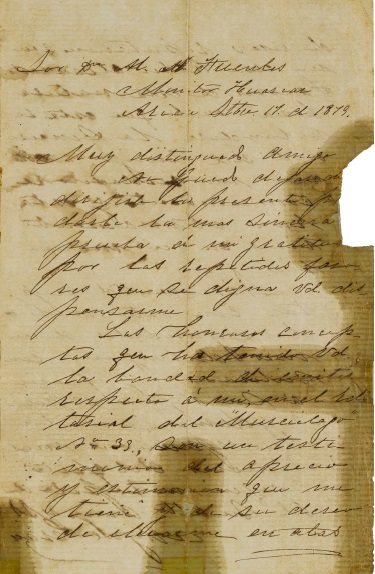 Sor Dn M. M. Fuentes
Monitor Huascar
Arica Stbre 17. d 1879.
Muy distinguido amigo
No puedo dejar de
dirigir la presente pa
darle la mas sincera
prueba á mi gratitud
por las repetidos favo
res qe se digna vd dis
pensarme
Los honrosos concep
tos qe ha tenido Vd
la bondad de
respecto á mi, en el Edi
torial del Murcielago
No 33, son un testi
monio del aprecio
y estimacion qe me
tiene y de su deseo
de en alas